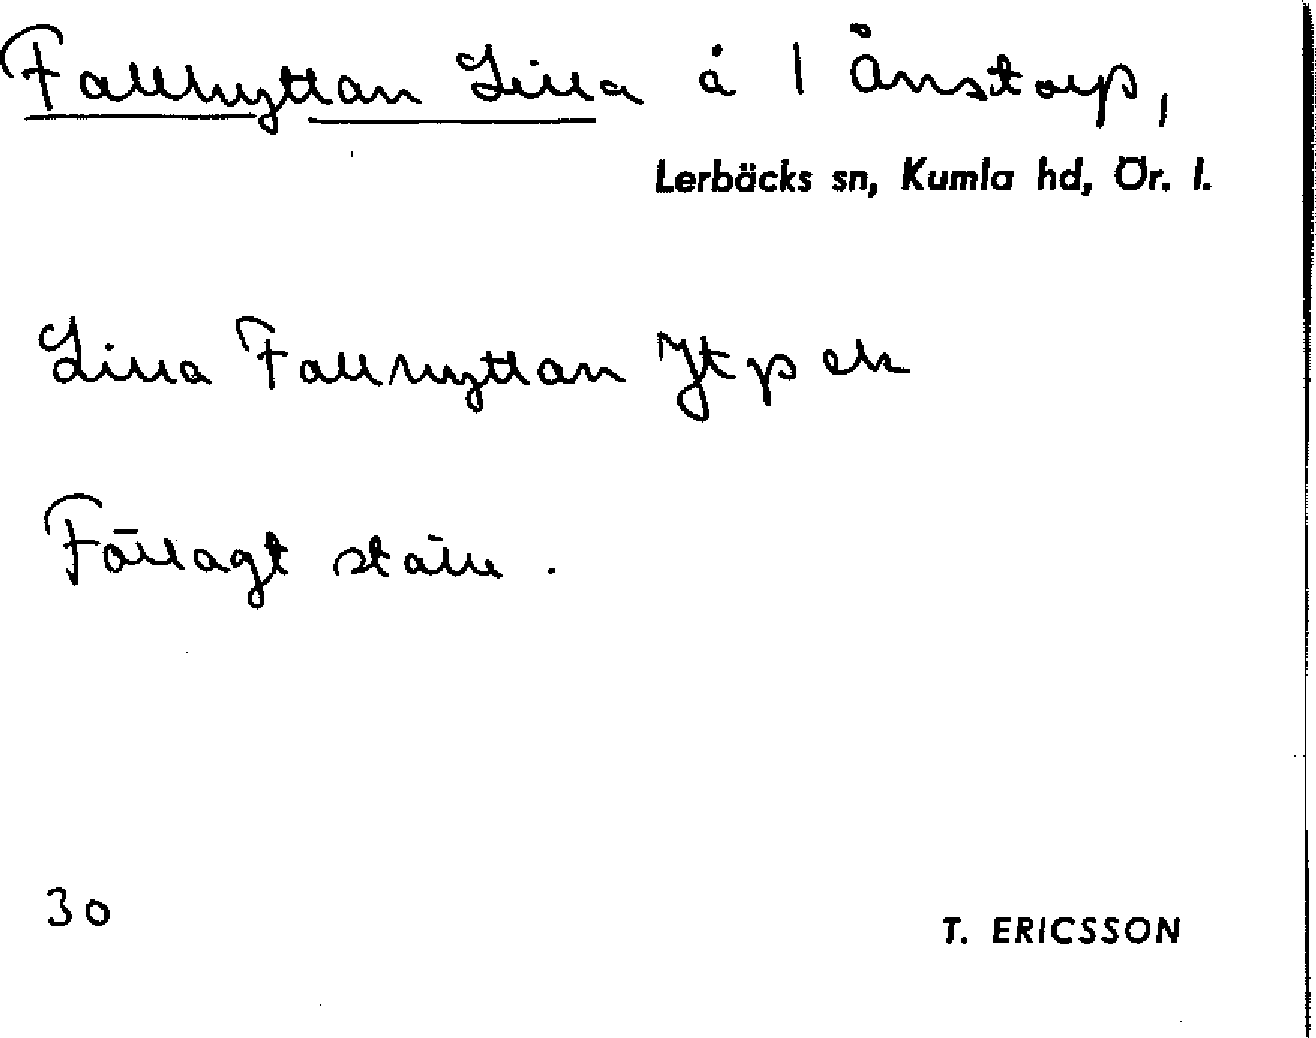 Fallhyttan Lilla å 1 Ånstorp,
Lerbäcks sn, Kumla hd, Ör. l.
Lilla Fallhyttan Jtp ek
Förlagt ställe.
30
T. ERICSSON